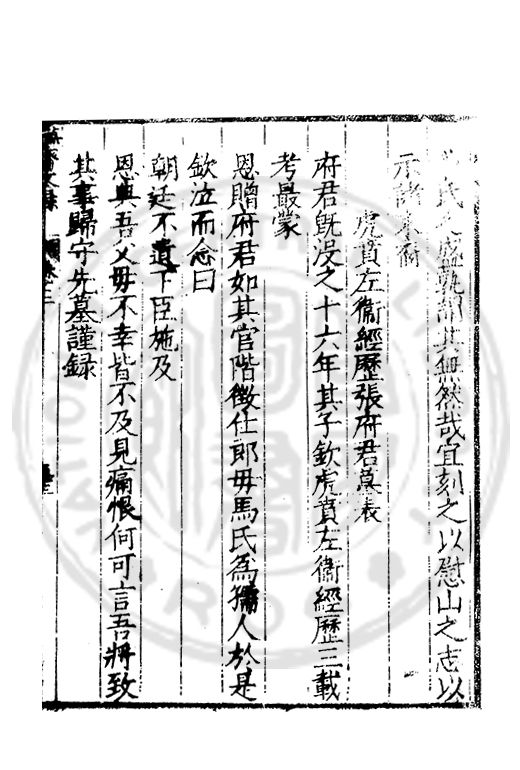 氏之盛孰謂其無然哉宜刻之以慰山之志以
示諸來裔
虎賁左衞經歷張府君墓表
府君旣沒之十六年其子欽虎賁左衞經歷三載
考最蒙
恩贈府君如其官階徵仕郎母馬氏為孺人於是
欽泣而念曰
朝廷不遺下臣施及
恩與吾父母不幸皆不及見痛恨何可言吾將致
其事歸守先墓謹錄